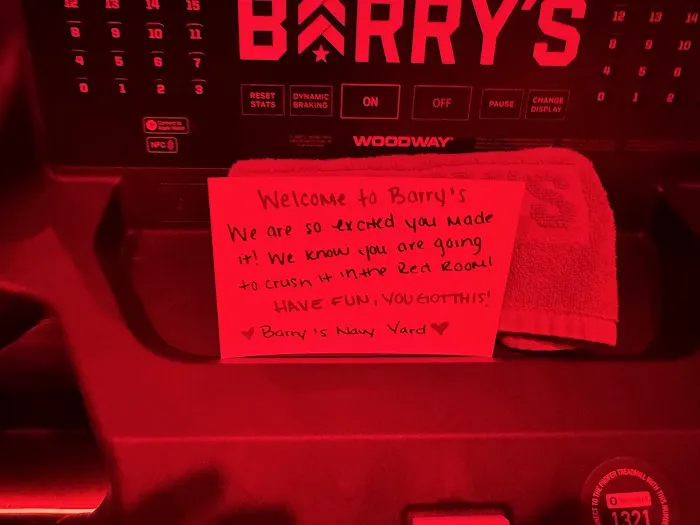 12 13 14 15
8 9 10 11
4 5 6 7
0 1 2 3
BARRY'S
12 13 14
8 9 10
4 5 6
0 1 2
RESET STATS
DYNAMIC BRAKING
ON
OFF
PAUSE
CHANGE DISPLAY
Connects to Apple Watch
NFC
WOODWAY
Welcome to Barry's
We are so excited you made
it! We know you are going
to crush it in the Red Room!
HAVE FUN, YOU GOT THIS!
Barry's Navy Yard
'S
TO THE PROPER TREADMILL WITH THIS
1321